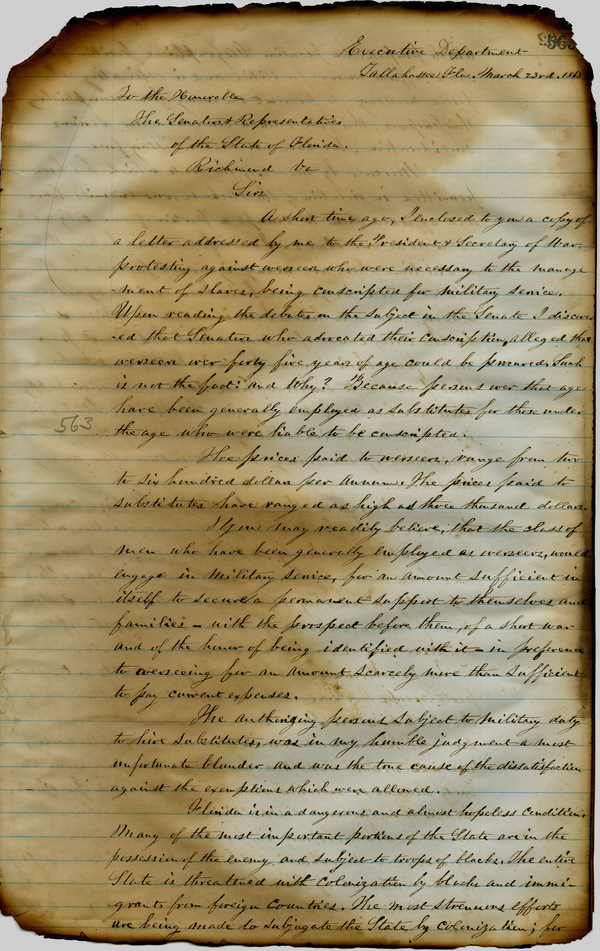 563
Executive Department
Tallahassee Fla. March 23rd. 1863
To the Honorable
The Senators & Representatives
of the State of Florida.
Richmond Va
Sirs
A short time ago, I enclosed to you a copy of
a letter addressed by me to the President & Secretary of War,
protesting against overseers who were necessary to the manage
-ment of slaves, being conscripted for military service.
Upon reading the debates on the subject in the Senate I discov-
-ered that Senators who advocated their conscription, alleged that
overseers over forty five years of age could be procured. Such
is not the fact: and Why? Because persons over that age
have been generally employed as substitutes for those under
563
the age who were liable to be conscripted.
The prices paid to overseers, range from two
to six hundred dollars per annum. The prices paid to
substitutes have ranged as high as three thousand dollars.
You may readily believe, that the class of
men who have been generally employed as overseers, would
engage in Military service, for an amount sufficient in
itself to secure a permanent support to themselves and
families - with the prospect before them, of a short war
and of the honor of being identified with it - in preference
to overseeing for an amount scarcely more than sufficient
to pay current expenses.
The authorizing persons subject to Military duty
to hire substitutes, was in my humble judgment a most
unfortunate blunder and was the true cause of the dissatisfaction
against the exemptions which were allowed.
Florida is in a dangerous and almost hopeless condition.
Many of the most important portions of the State are in the
possession of the enemy and subject to troops of blacks. The entire
State is threatened with colonization by blacks and immi-
grants from foreign Countries. The most strenuous efforts
are being made to subjugate the State by colonization; for